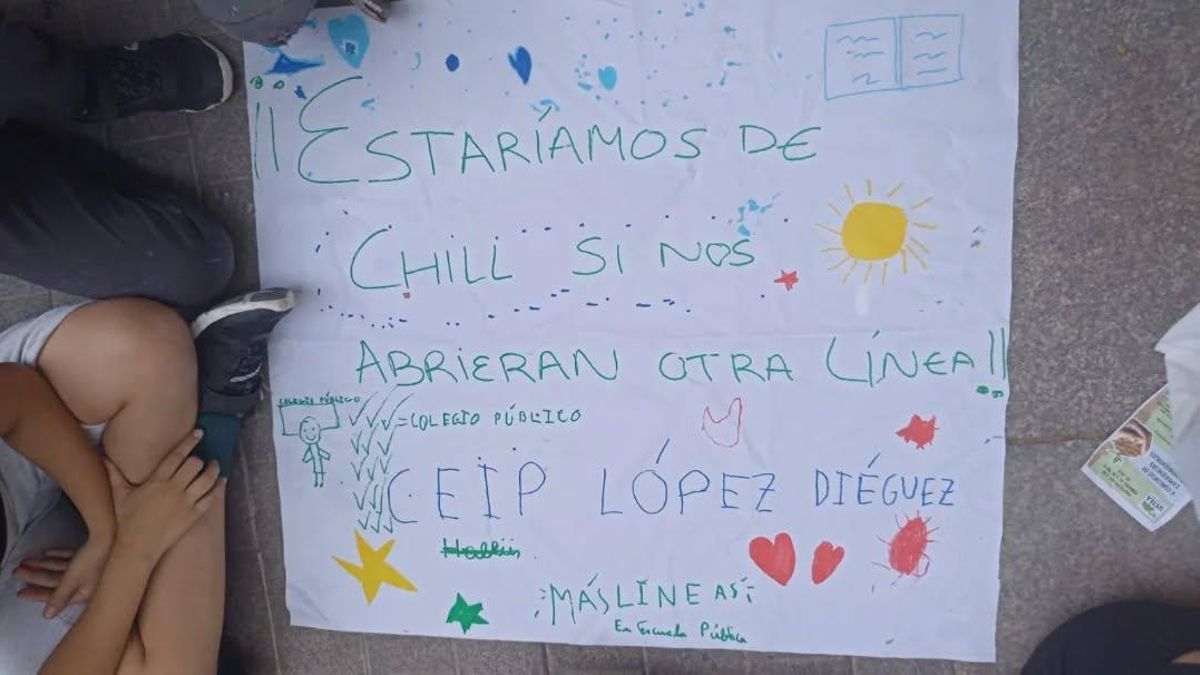 ¡¡ESTARÍAMOS DE
CHILL SI NOS
ABRIERAN OTRA LÍNEA!!
COLEGIO PÚBLICO
= COLEGIO PÚBLICO
CEIP LÓPEZ DIÉGUEZ
¡MÁS LINEAS!
En Escuela Pública